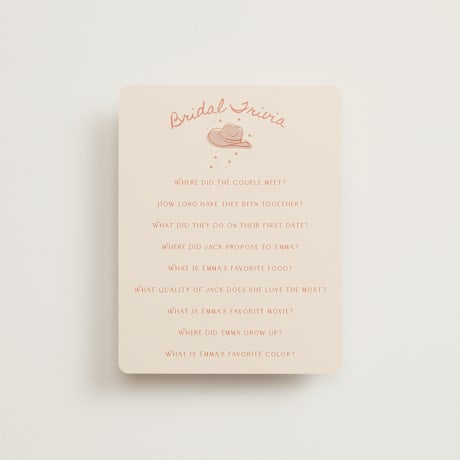 Bridal Trivia
Where did the couple meet?
How long have they been together?
What did they do on their first date?
Where did Jack propose to Emma?
What is Emma's favorite food?
What quality of Jack does she love the most?
What is Emma's favorite movie?
Where did Emma grow up?
What is Emma's favorite color?